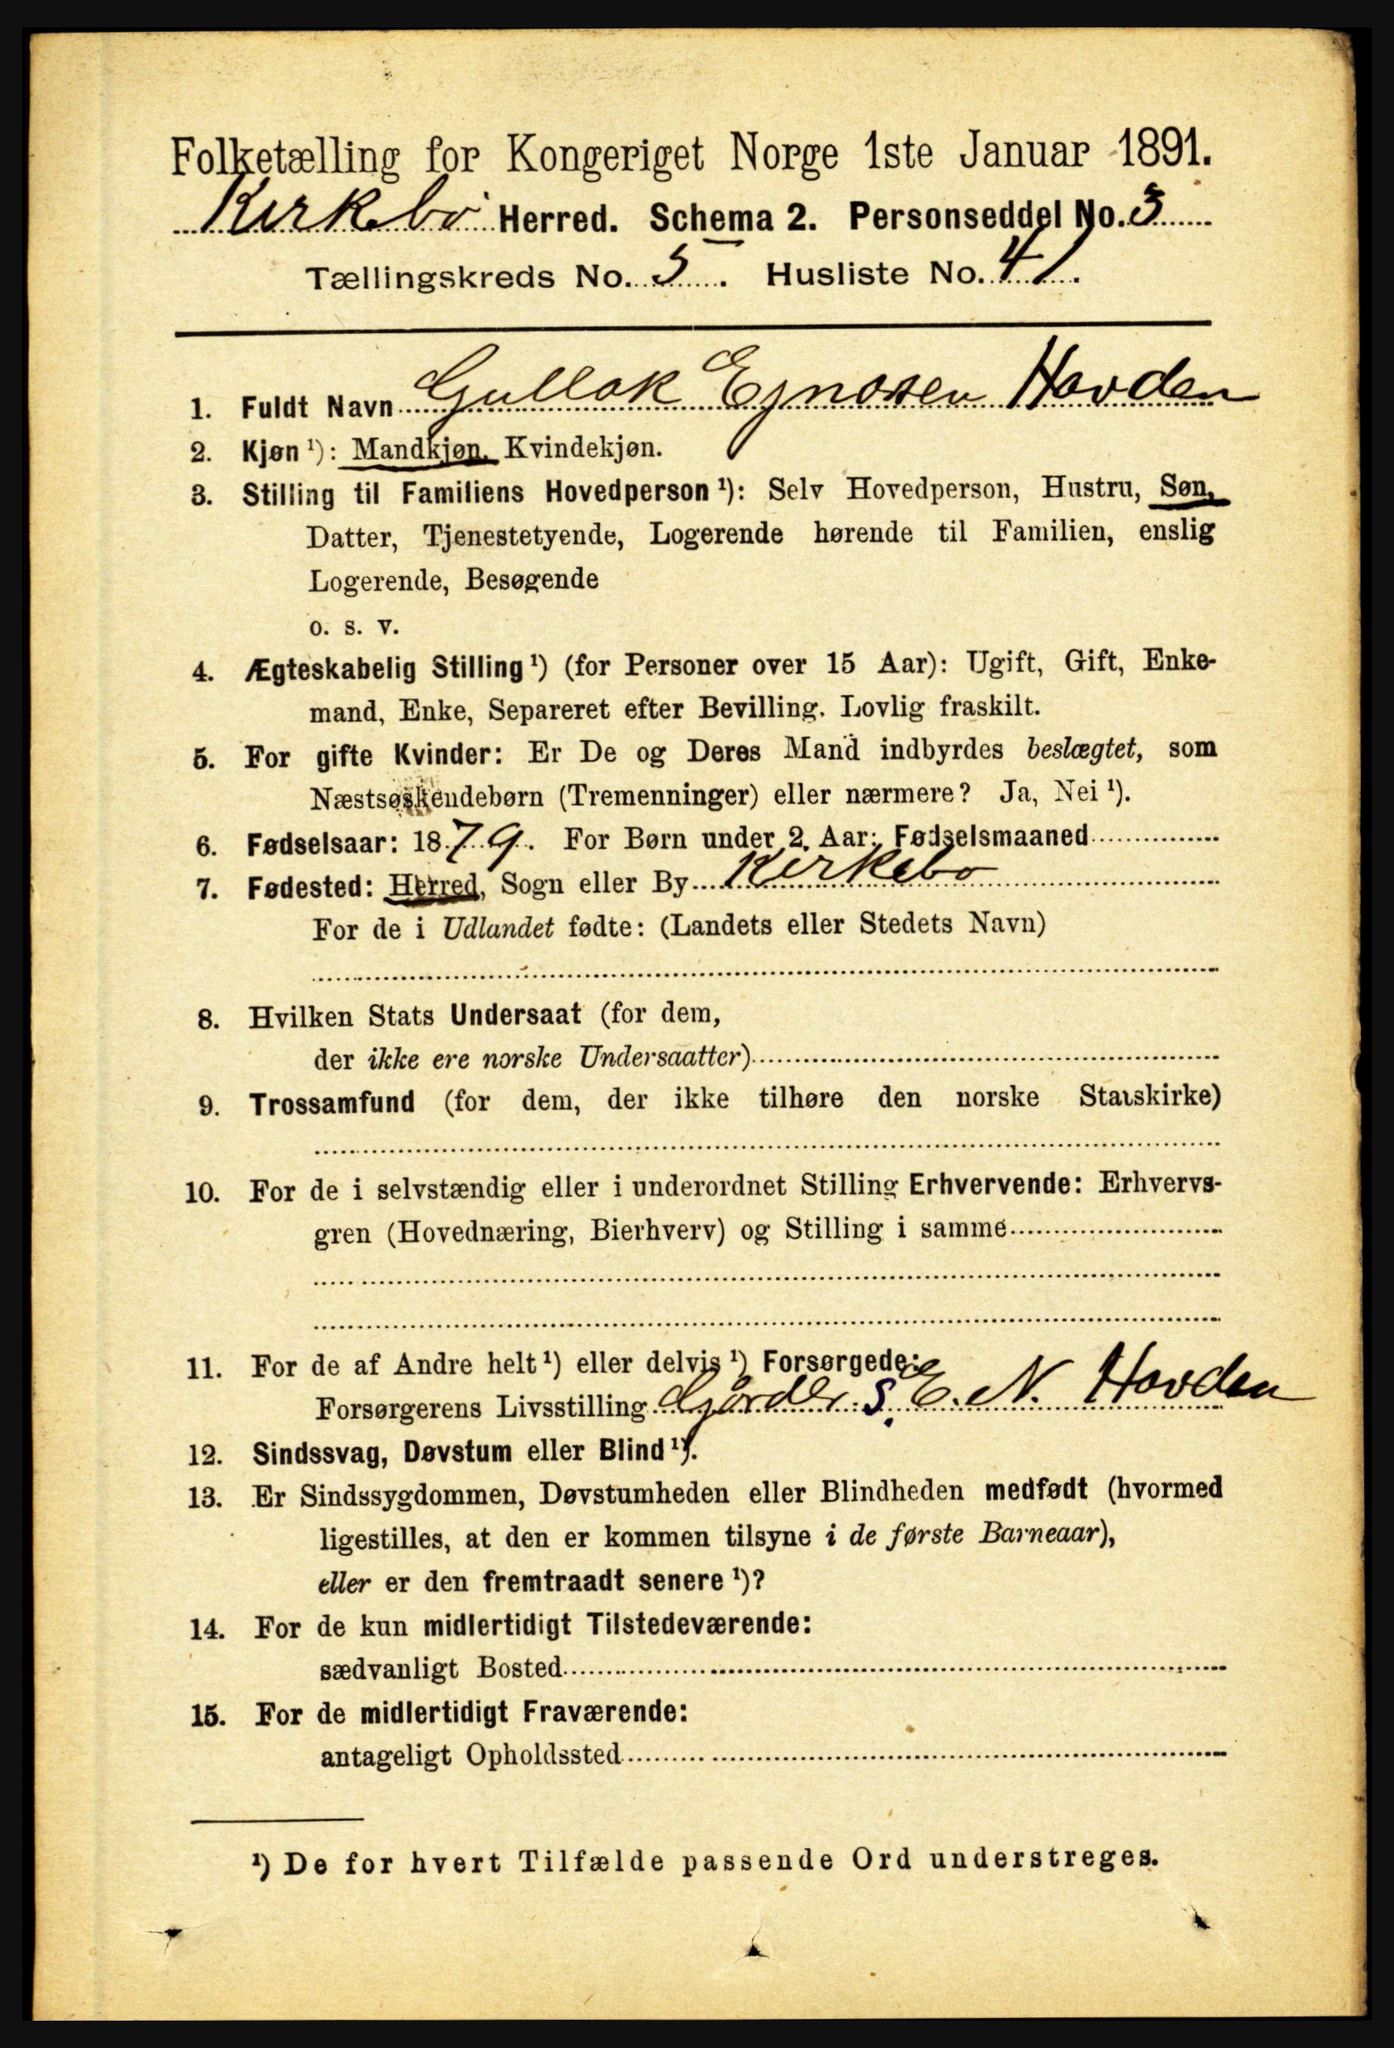 Folketælling for Kongeriget Norge 1ste Januar 1891.
Kirkebø Herred. Schema 2. Personseddel No. 3
Tællingskreds No. 5. Husliste No. 41.
1. Fuldt Navn Gullak Hovden
2. Kjøn ¹): Mandkjøn, Kvindekjøn.
3. Stilling til Familiens Hovedperson ¹): Selv Hovedperson, Hustru, Søn,
Datter, Tjenestetyende, Logerende hørende til Familien, enslig
Logerende, Besøgende
o. s. v.
4. Ægteskabelig Stilling ¹) (for Personer over 15 Aar): Ugift, Gift, Enke-
mand, Enke, Separeret efter Bevilling. Lovlig fraskilt.
5. For gifte Kvinder: Er De og Deres Mand indbyrdes beslægtet, som
Næstsøskendebørn (Tremenninger) eller nærmere? Ja, Nei ¹).
6. Fødselsaar: 1879. For Børn under 2 Aar: Fødselsmaaned
7. Fødested: Herred, Sogn eller By Kirkebø
For de i Udlandet fødte: (Landets eller Stedets Navn)
8. Hvilken Stats Undersaat (for dem,
der ikke ere norske Undersaatter)
9. Trossamfund (for dem, der ikke tilhøre den norske Statskirke)
10. For de i selvstændig eller i underordnet Stilling Erhvervende: Erhvervs-
gren (Hovednæring, Bierhverv) og Stilling i samme
11. For de af Andre helt ¹) eller delvis ¹) Forsørgede:
Forsørgerens Livsstilling Gårdbr S. E. N. Hovden
12. Sindssvag, Døvstum eller Blind ¹).
13. Er Sindssygdommen, Døvstumheden eller Blindheden medfødt (hvormed
ligestilles, at den er kommen tilsyne i de første Barneaar),
eller er den fremtraadt senere ¹)?
14. For de kun midlertidigt Tilstedeværende:
sædvanligt Bosted
15. For de midlertidigt Fraværende:
antageligt Opholdssted
¹) De for hvert Tilfælde passende Ord understreges.